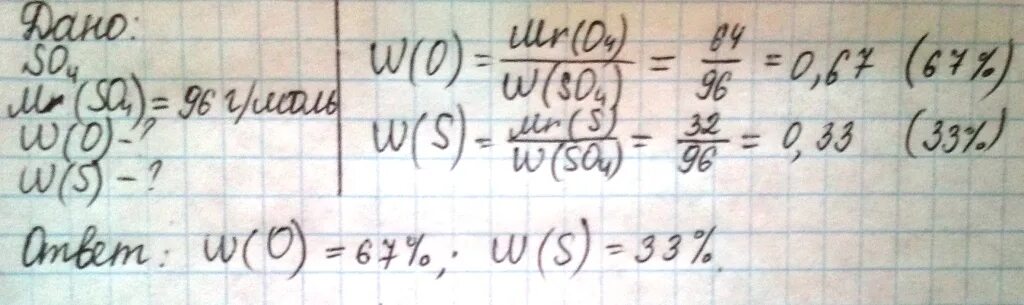 Дано:
SO₄
Mr(SO₄) = 96 г/моль
W(O) - ?
W(S) - ?
W(O) = Mr(O₄)/W(SO₄) = 64/96 = 0,67 (67%)
W(S) = Mr(S)/W(SO₄) = 32/96 = 0,33 (33%)
Ответ: W(O) = 67%; W(S) = 33%.